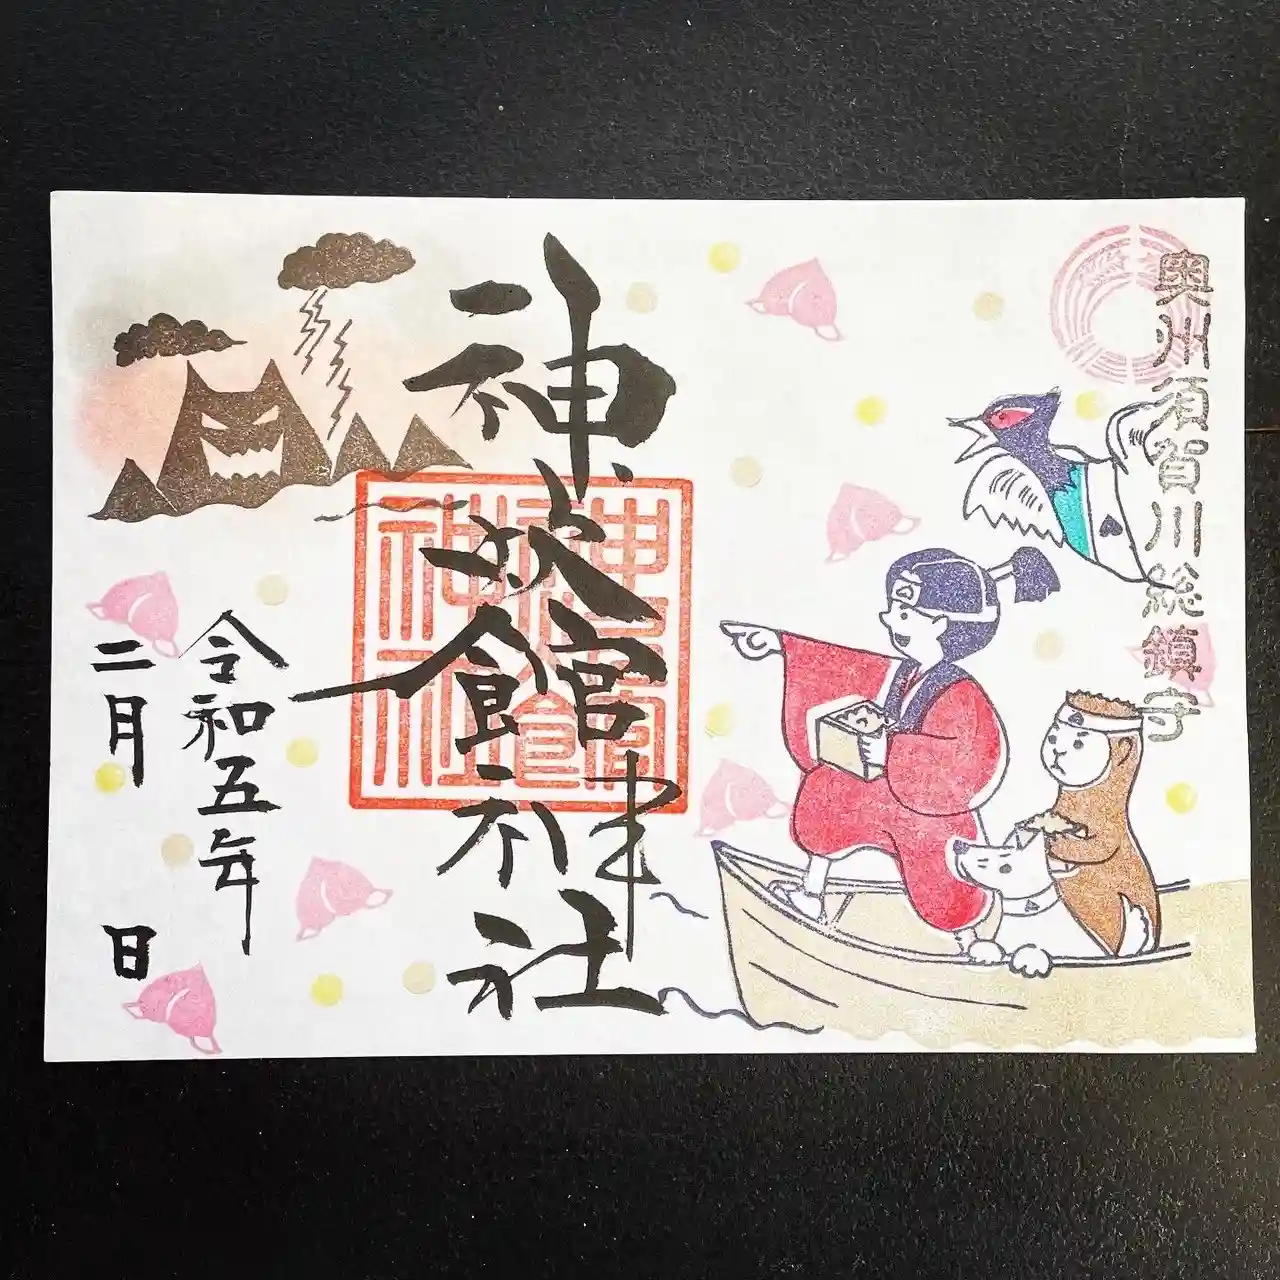 奥州須賀川総鎮守
神炊館神社
令和五年
二月 日